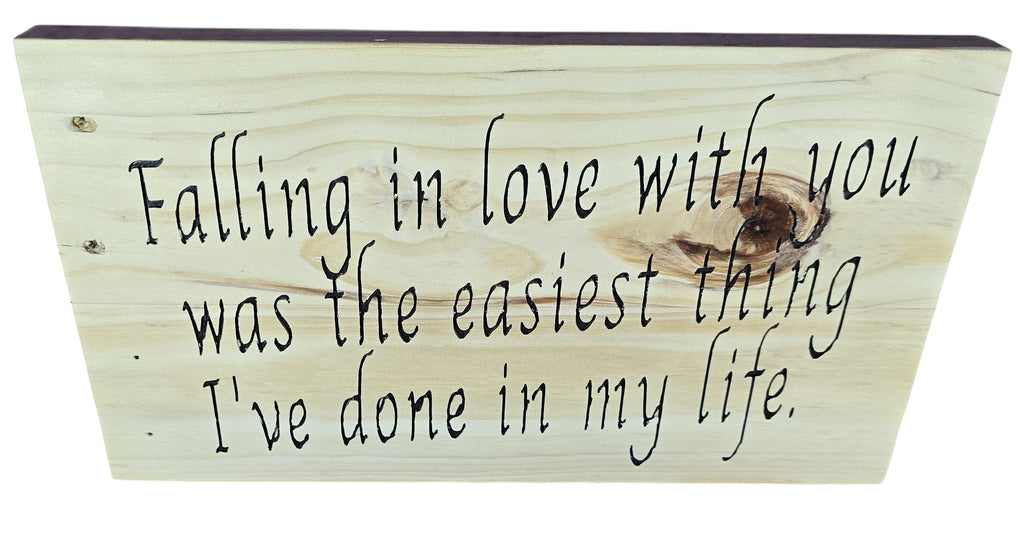 Falling in love with you
was the easiest thing
I've done in my life.